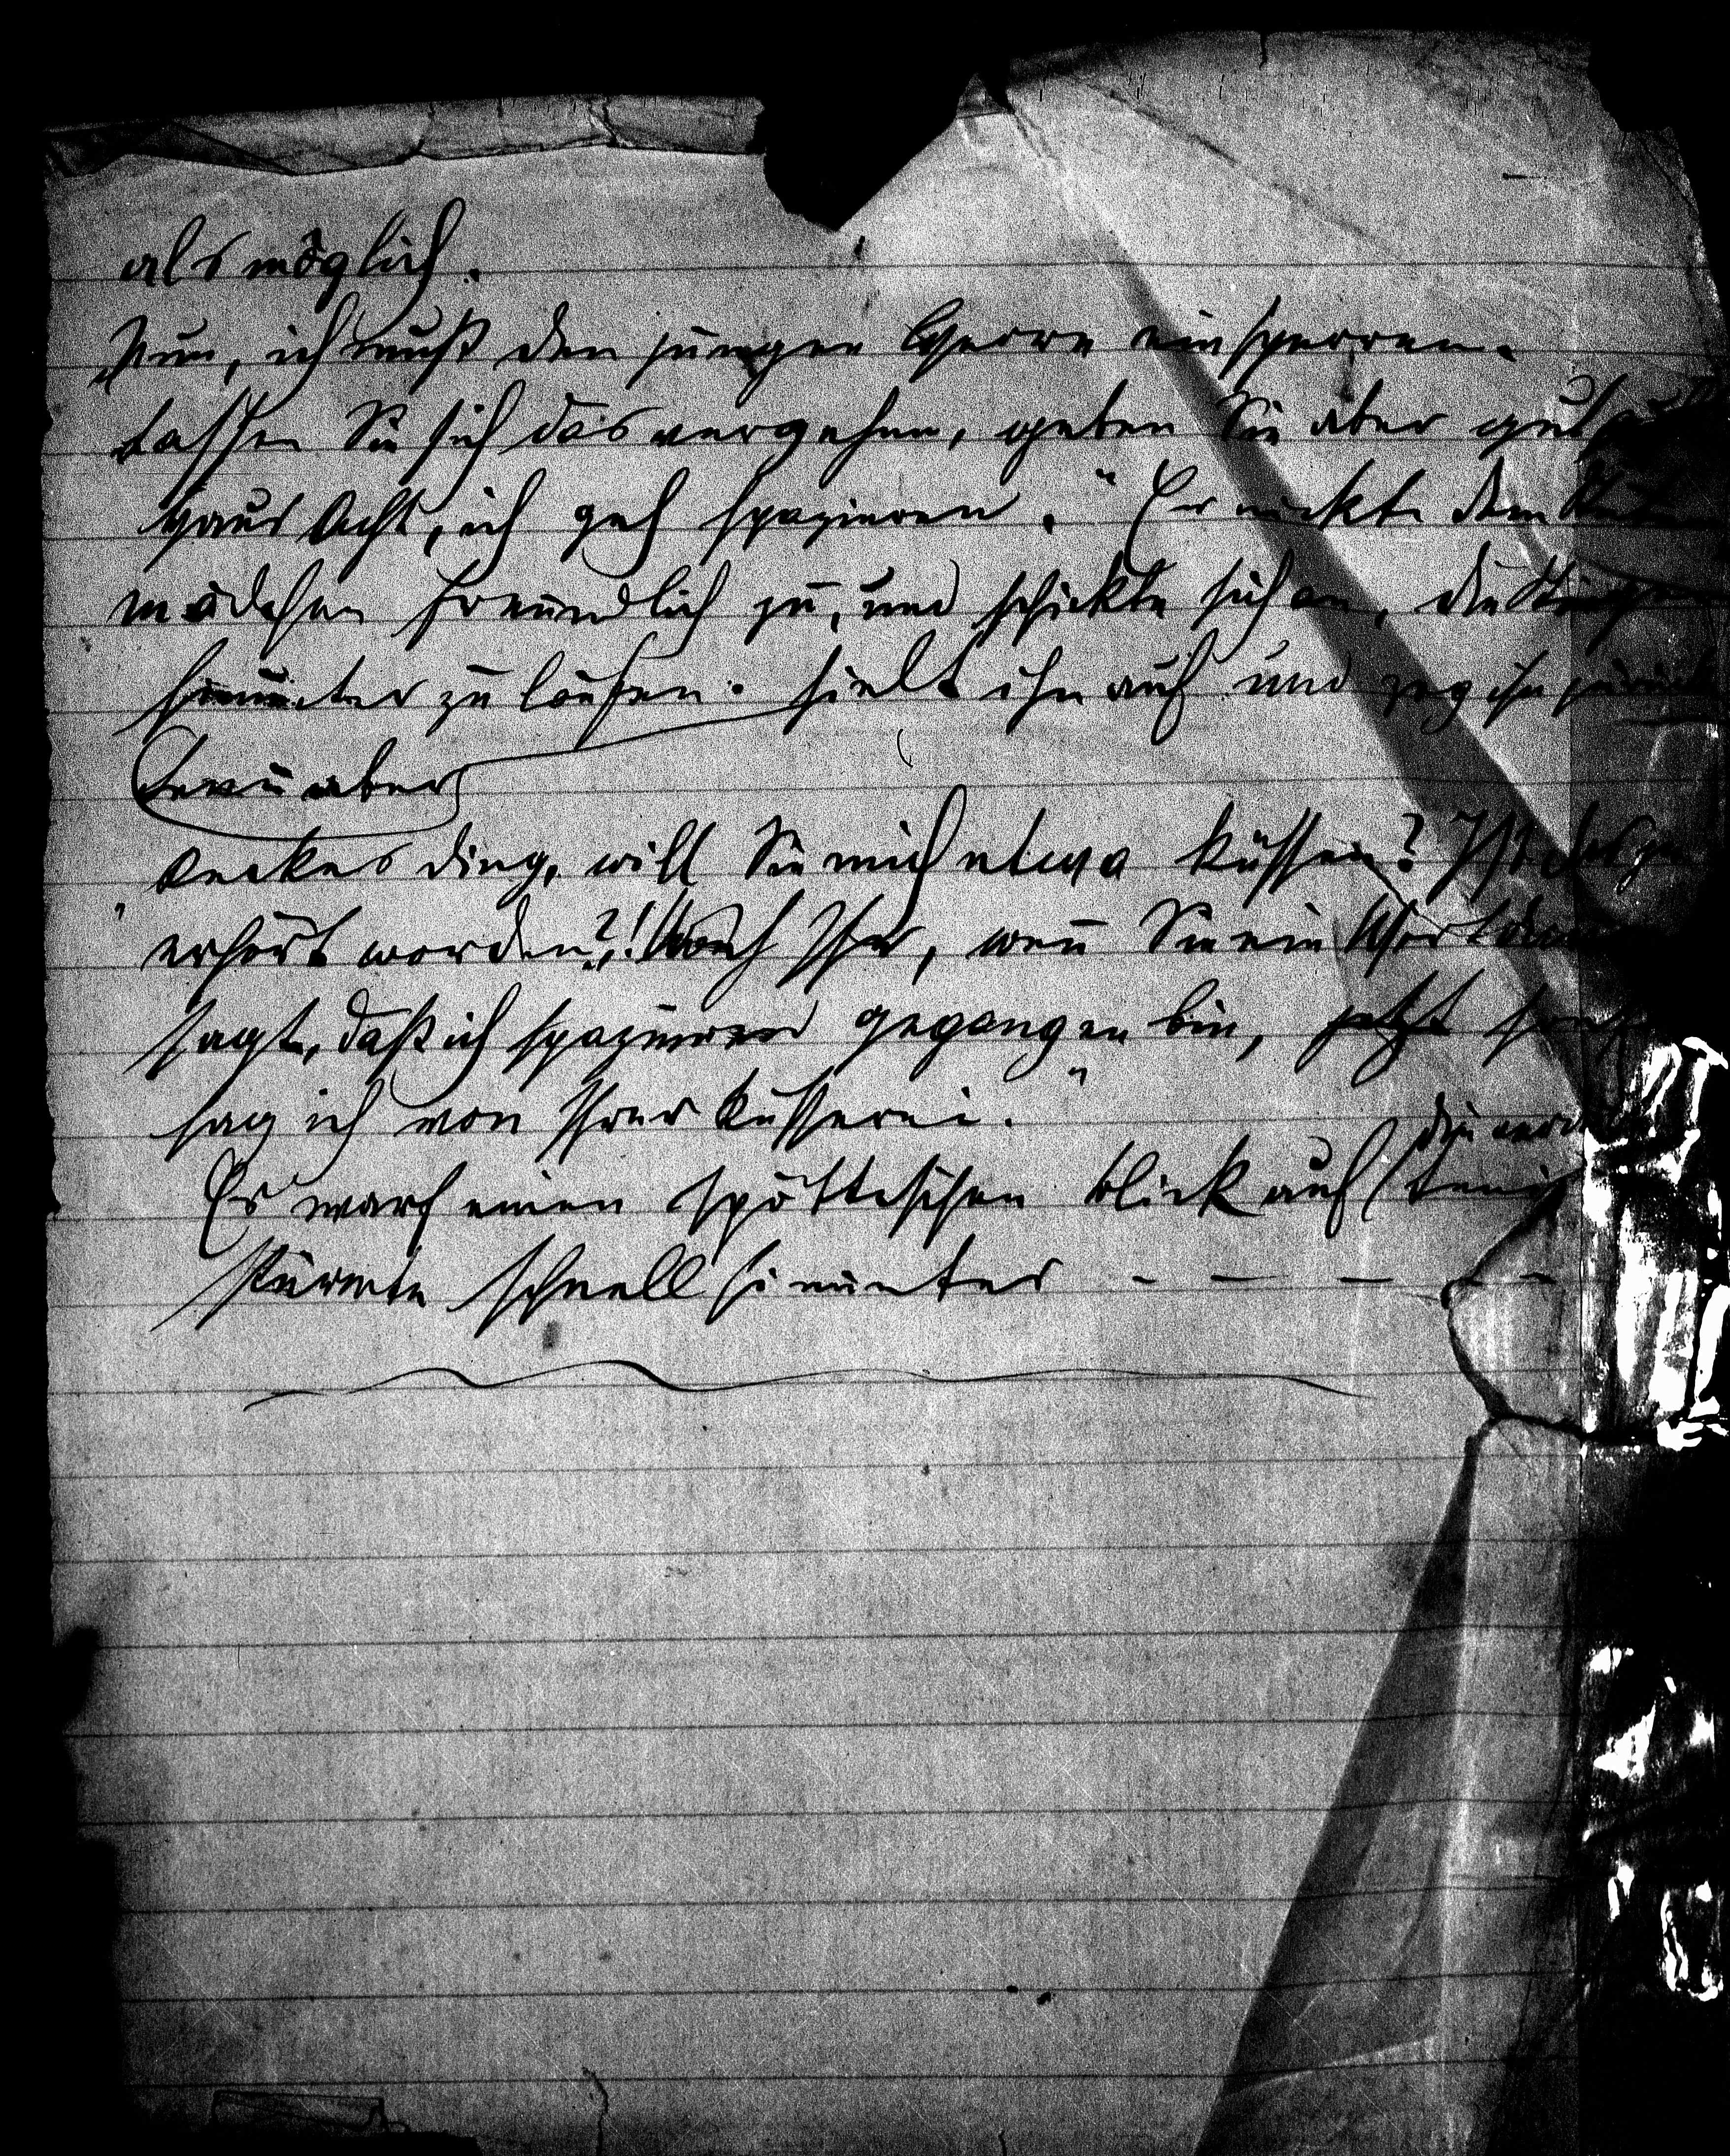 als möglich.
"Nun, ich muß den jungen Herrn einsperren.
Lassen Sie sich das vergehen, geben Sie aber gut aufs
Haus Acht, ich geh spazieren." Er nickte dem
mädchen freundlich zu, und schickte sich an, die Stiegen
hinunter zu laufen. hielt ihn auf und zog ihn zurück
aber
"keckes ding, will Sie mich etwa küssen? Ist das je
erhört worden?! Weh Ihr, wenn Sie ein Wort davon
sagt, daß ich spazieren gegangen bin, jetzt
sag ich von Ihrer Küsserei."
die
Er warf einen spöttischen blick auf
stürmte schnell hinunter - - - - -